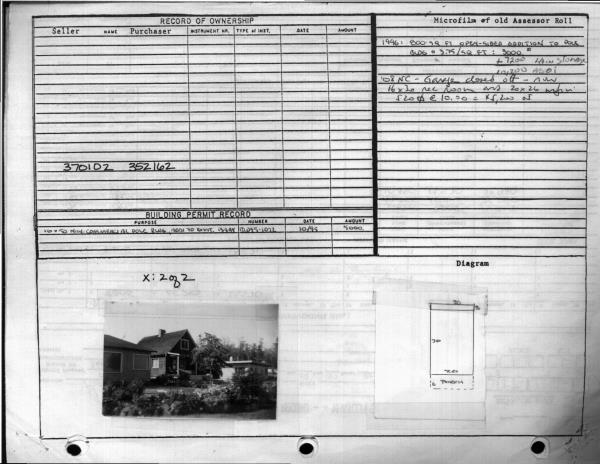 RECORD OF OWNERSHIP
Seller NAME Purchaser INSTRUMENT NR. TYPE of INST. DATE AMOUNT
370102 352162
BUILDING PERMIT RECORD
PURPOSE NUMBER DATE AMOUNT
COMMERCIAL POLE BLDG. ADD TO EXIST. 10/95 5000.
Microfilm of old Assessor Roll
1996: 800 SQ FT OPEN-SIDED ADDITION TO POLE
BLDG @ 3.75/SQ FT = 3000.
+7200
'08 NC - Garage closed off - now
16x20 rec room and 20x26
520 @ 10.00 = $5,200
Diagram
X: 2 of 2
20
30
20
6 PORCH